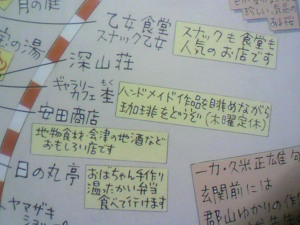 月の庭
乙女食堂
スナック乙女
スナックも食堂も
人気のお店です
宝の湯
深山荘
ギャラリー
カフェ 杢
もく
ハンドメイド作品を眺めながら
珈琲をどうぞ(木曜定休)
安田商店
地物食材、会津の地酒など
おもしろい店です
日の丸亭
おばちゃん手作り
温ったかい弁当
食べて行けます
ヤマザキ
ショップ
一力・久米正雄句
玄関前には
郡山ゆかりの作